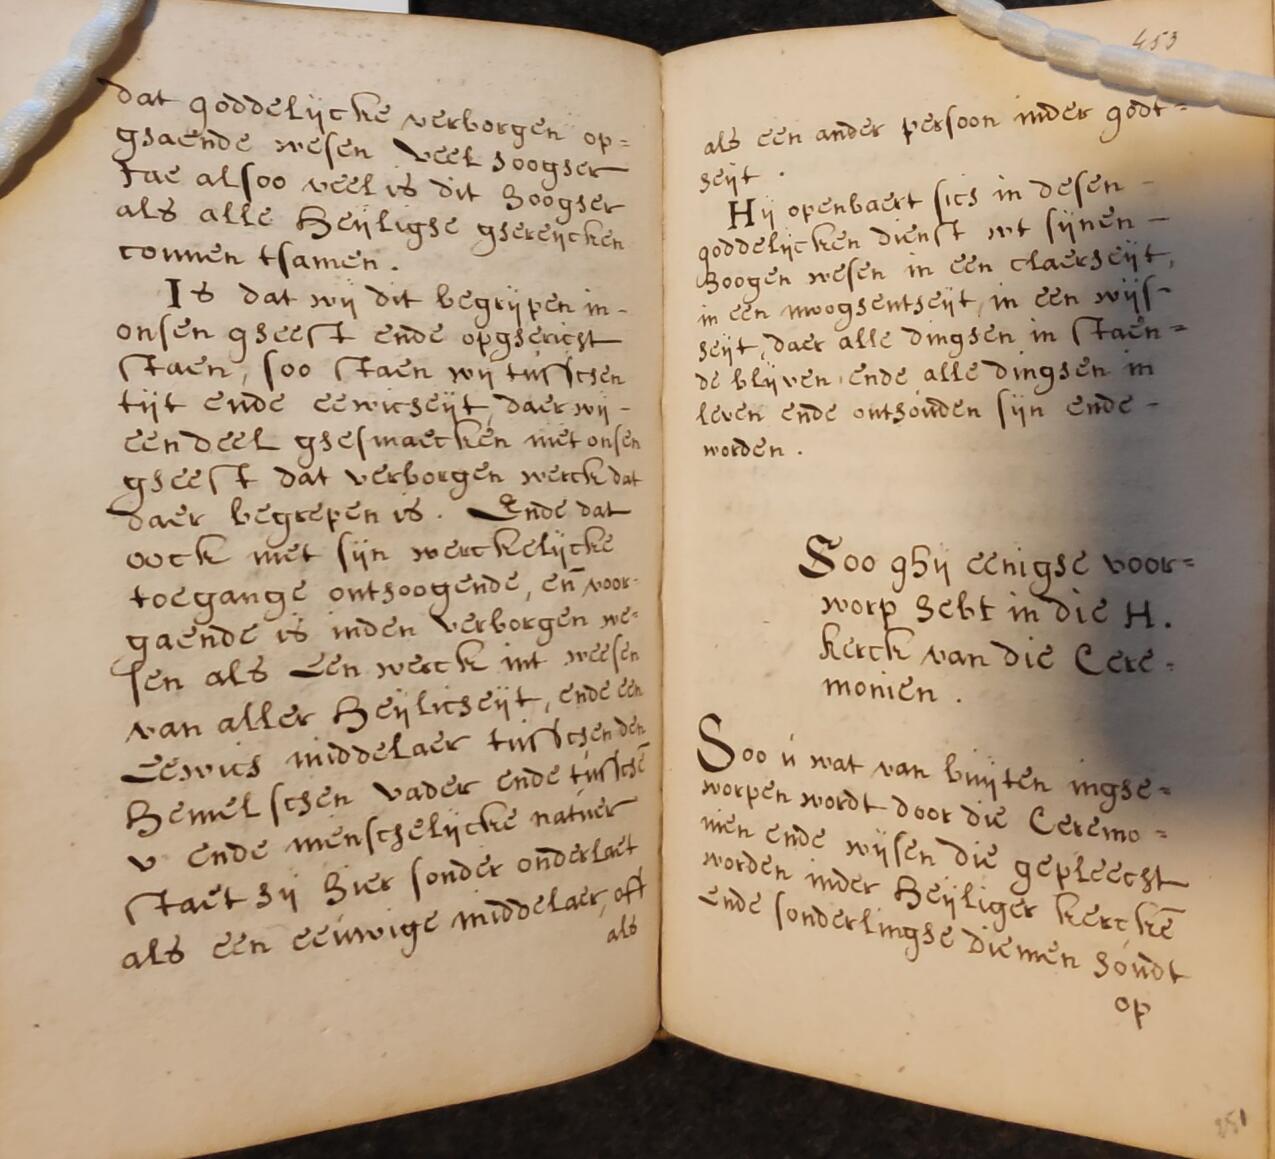 dat goddelijcke verborgen op=
ghaende wesen veel hoogher
Jae alsoo veel is dit hoogher
als alle heijlighe ghereijcken
connen tsamen.
Is dat wij dit begrijpen in-
onsen gheest ende opghericht
staen, soo staen wij tusschen
tijt ende eewicheijt, daer wij-
een deel ghesmaecken met onsen
gheest dat verborgen werck dat
daer begrepen is. Ende dat
oock met sijn werckelijcke
toegange onthoogende, en̄ voor-
gaende is inden verborgen we=
sen als Een werck int weesen
van aller heijlicheijt, ende een
Eewich middelaer tusschen den
hemelschen vader ende tusschē
v ende menschelijcke natuer
staet hij hier sonder onderlaet
als een eeuwige middelaer, oft
als
453
als een ander persoon inder godt=
heijt.
Hij openbaert sich in desen-
goddelijcken dienst wt sijnen-
hoogen wesen in een claerheijt,
in een mooghentheijt, in een wijs-
heijt, daer alle dinghen in staen=
de blijven, ende alle dinghen in
leven ende onthouden sijn ende-
worden.
Soo ghij eenighe voor=
worp hebt in die H.
kerck van die Cere=
monien.
Soo ú wat van buijten inghe=
worpen wordt door die Ceremo=
nien ende wijsen die gepleecht
worden inder heijliger kerckē
Ende sonderlinghe diemen houdt
op
251